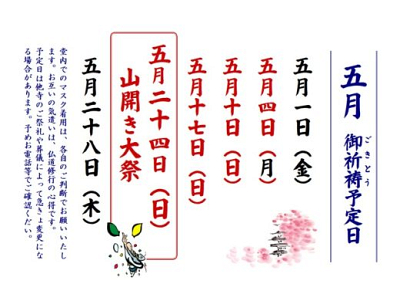 五月 御祈祷予定日
ごきとう
五月一日（金）
五月四日（月）
五月十日（日）
五月十七日（日）
五月二十四日（日）
山開き大祭
五月二十八日（木）
堂内でのマスク着用は、各自のご判断でお願いいたし
ます。お互いの気遣いは、仏道修行の心得です。
予定日は他寺のご祭礼や葬儀によって急きょ変更にな
る場合があります。予めお電話等でご確認ください。